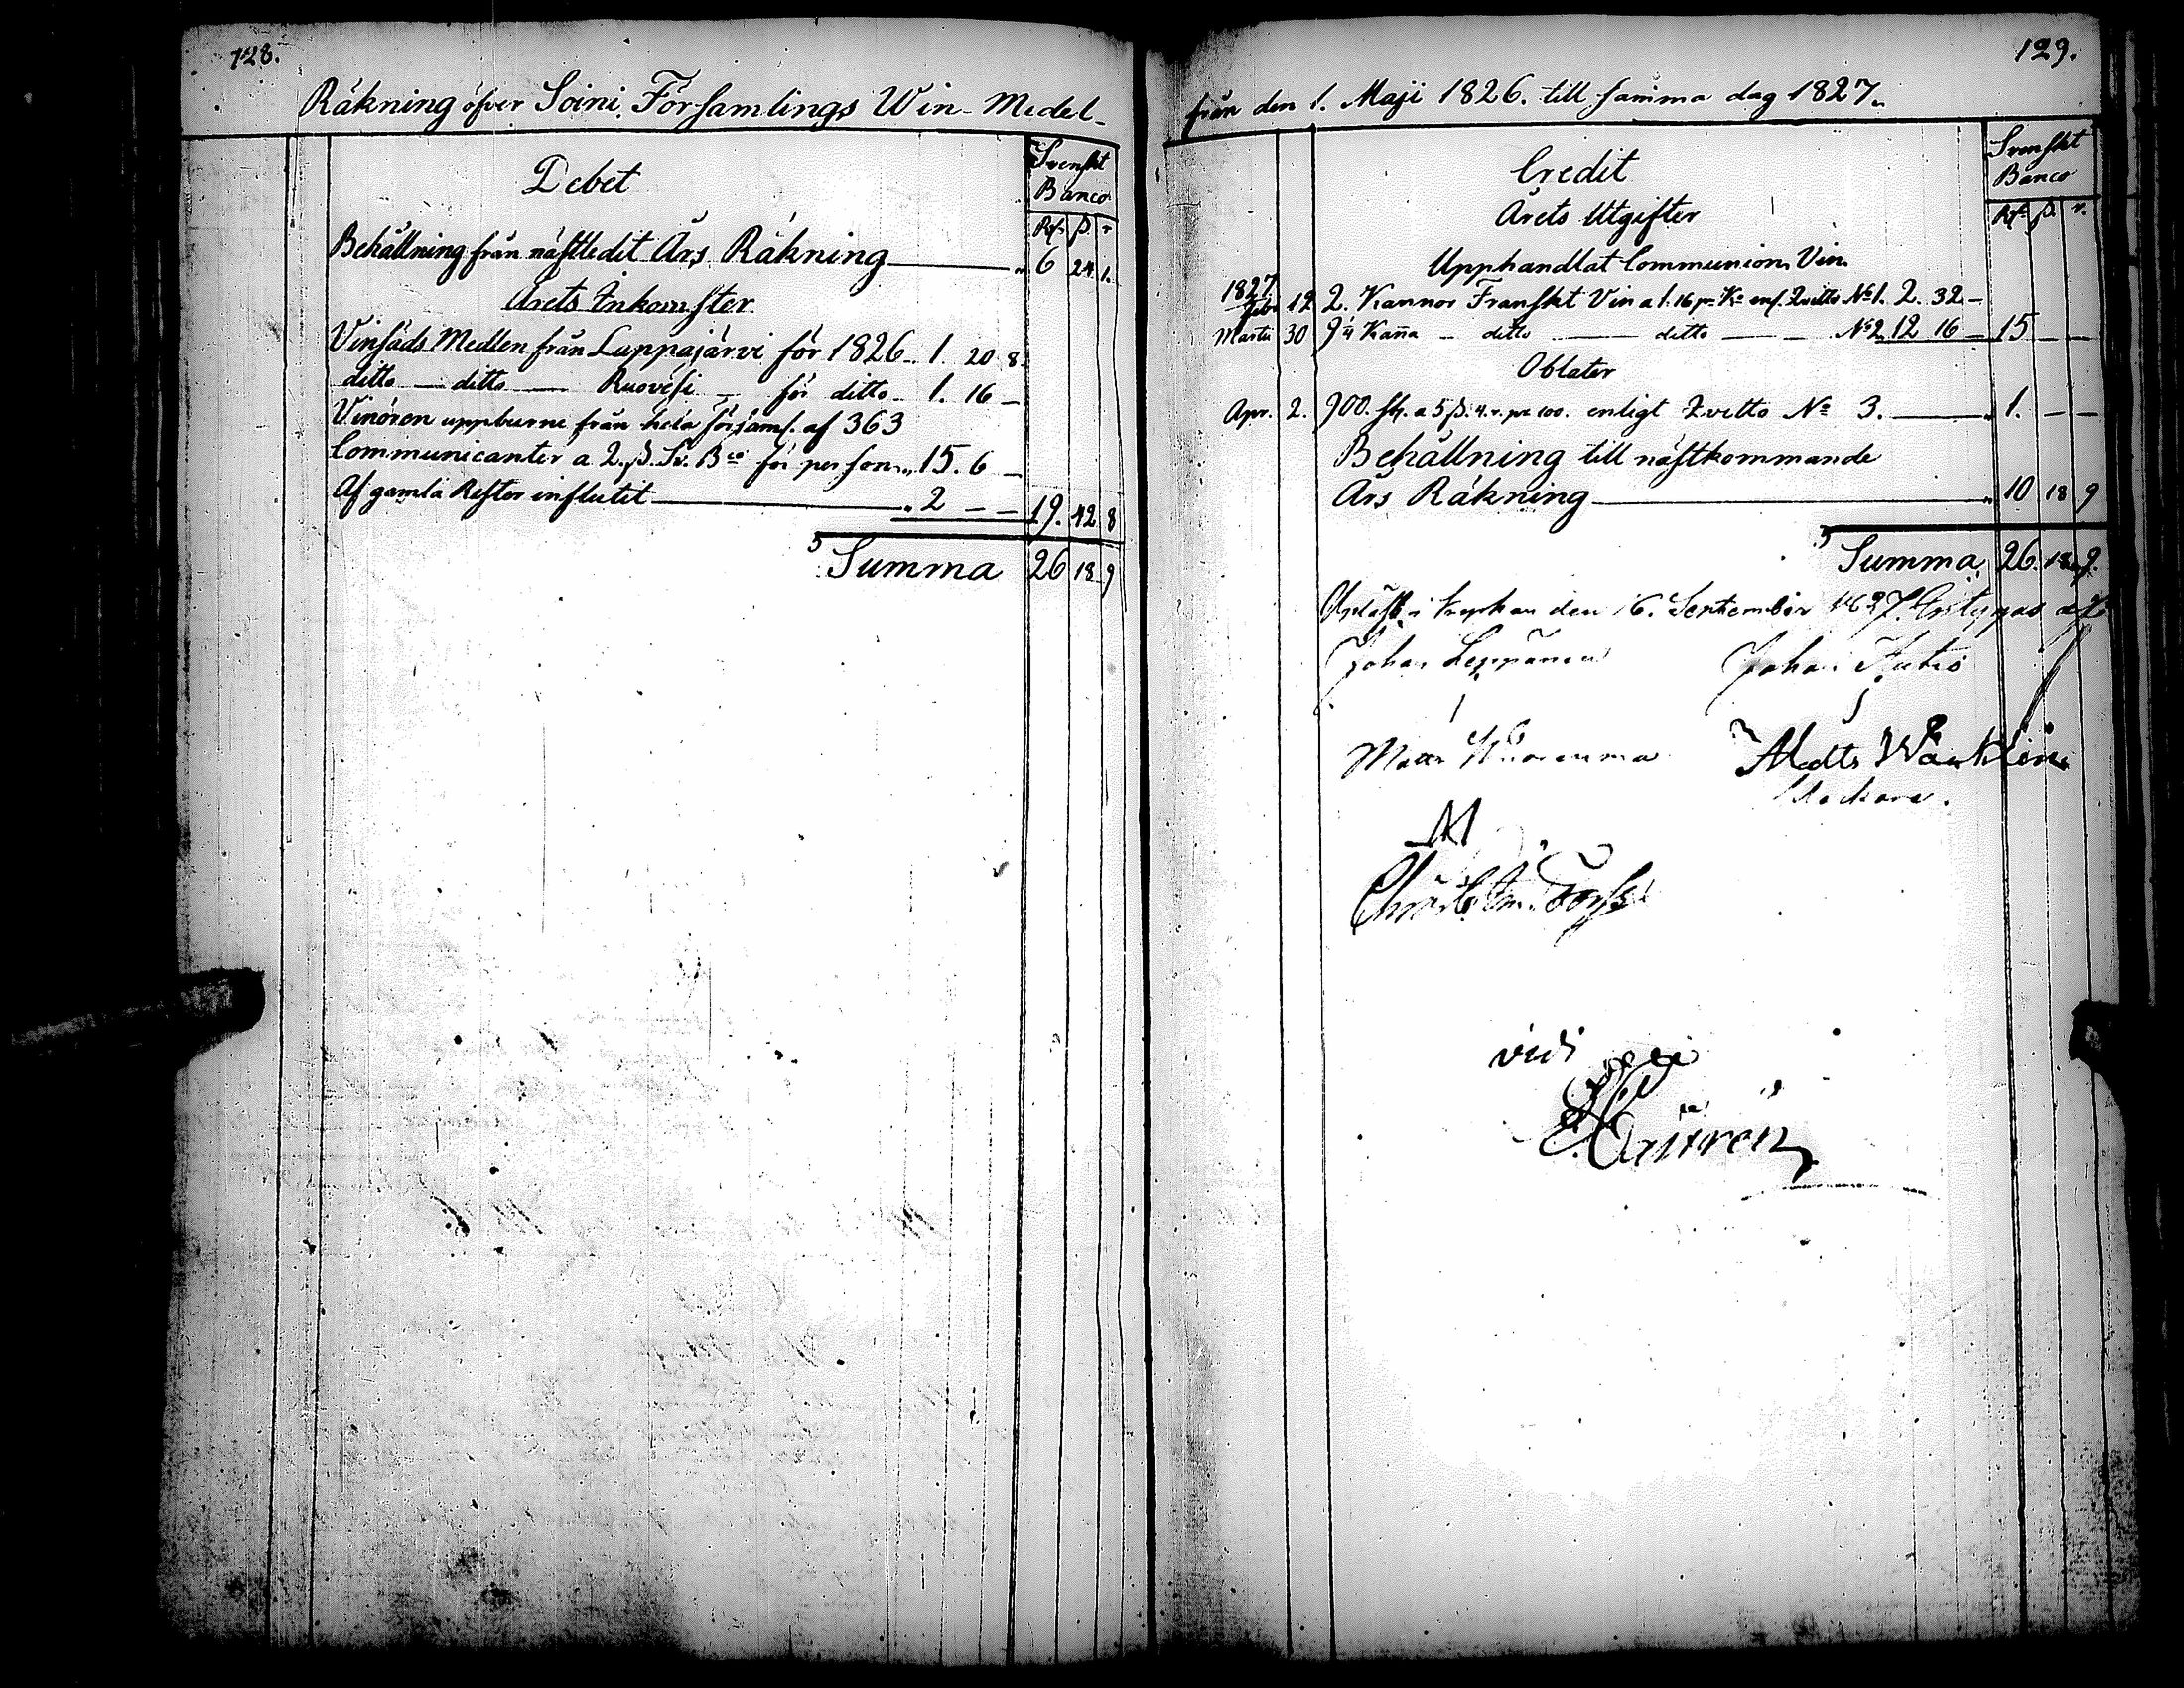 128.
Räkning öfver Soini Församlings Win-Medel
Debet
Svenskt Banco
Rd. ß. r.
Behållning från nästledit Års Räkning 6 24. 1.
Årets Inkomster
Vinsäds Medlen från Lappajärvi för 1826 1. 20 8.
ditto ditto Ruovesi för ditto 1. 16 –
Vinören uppburne från hela församl. af 363
Communicanter a 2. ß. Sv. Bco för person 15. 6 –
Af gamla Rester influtit 2 – – 19. 42 8
Summa 26 18 9
129.
från den 1. Maji 1826. till samma dag 1827.
Credit
Svenskt Banco
Årets Utgifter
Rd. ß. r.
Upphandlat Communions Vin
1827
Febr. 12 2. Kannor Franskt Vin a 1. 16 pr Ka enl. Qvitto No 1. 2. 32 –
Martii 30 ditto ditto No 2 12 16 – 15 – –
Oblater
Apr. 2. 900. st. a 5 ß. 4. r. pr 100. enligt Qvitto No 3. 1. – –
Behållning till nästkommande
Års Räkning 10 18 9
Summa 26. 18 9.
Upläst i kyrkan den 16. September 1827. Betygas af
Johan Leppänen Johan
Matts Matts
vidi